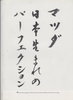 マツダ
日本生まれの
パーフェクション